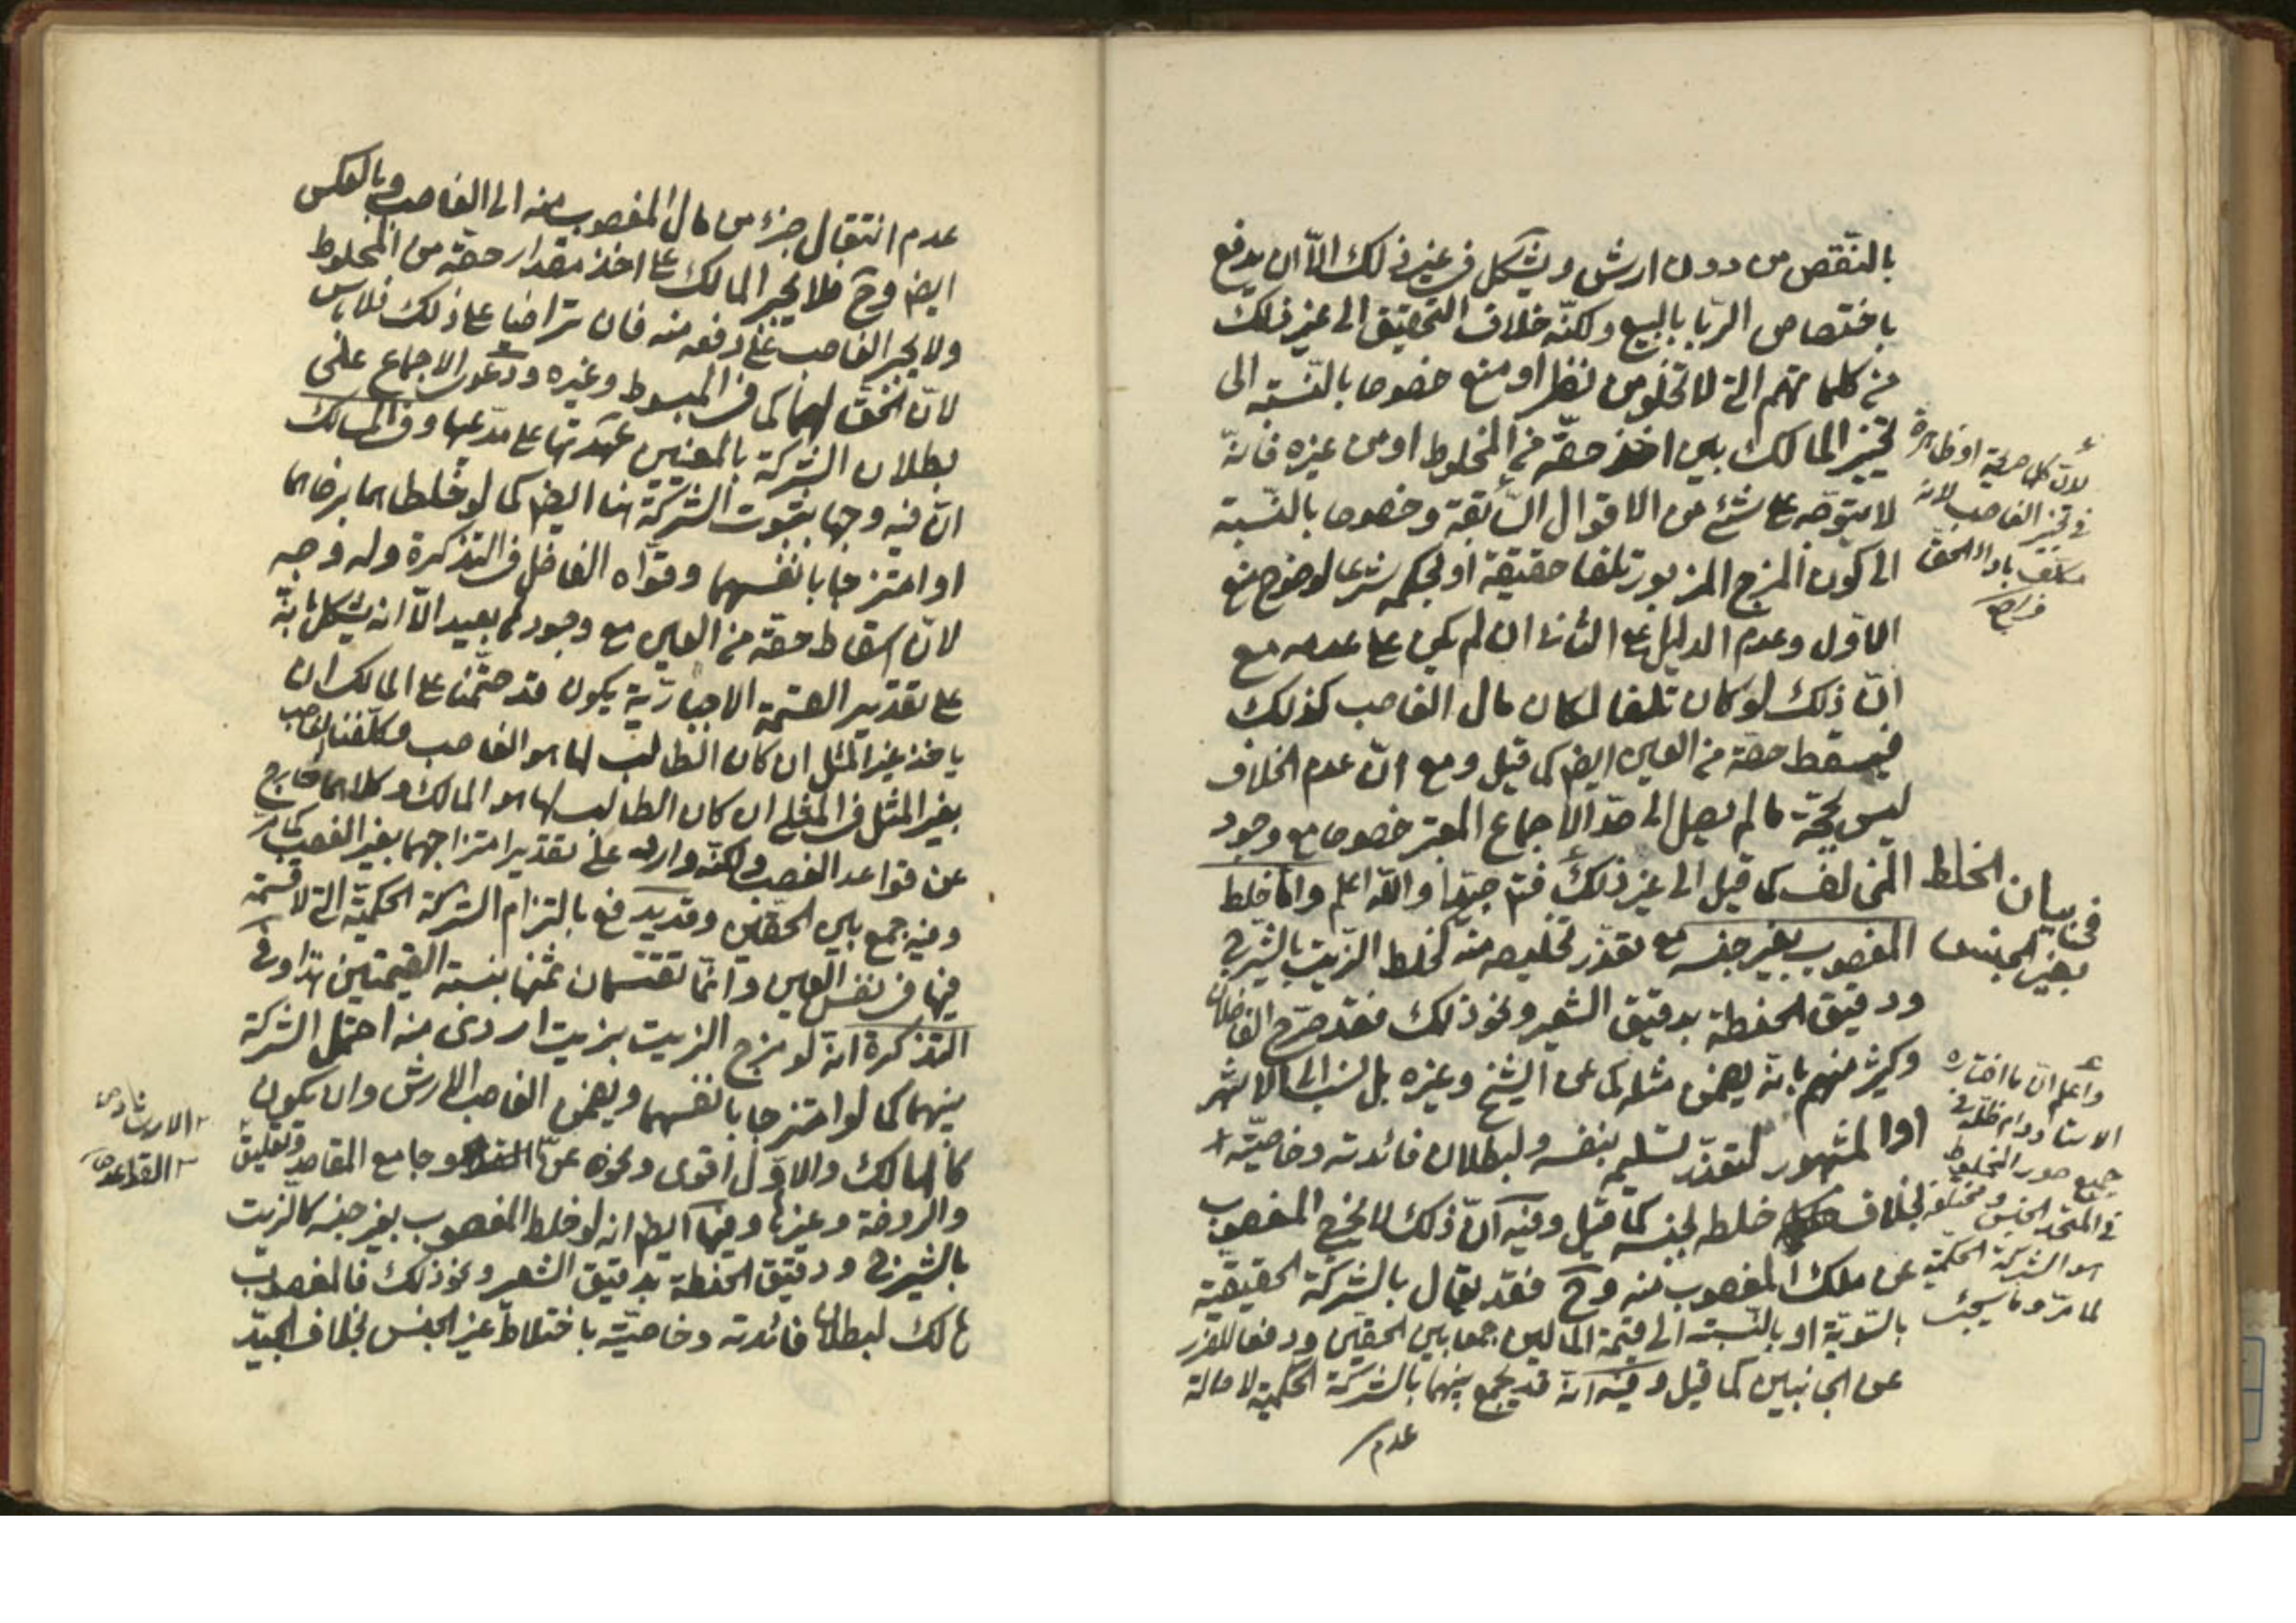 بالنّقص من دون ارش ويشكل في غير ذلك الّا ان يدفع
باختصاص الرّبا بالبيع ولكنّه خلاف التحقيق الى غير ذلك
من كلماتهم التي لا تخلو من نظر او منع خصوصا بالنّسبة الى
تخيير المالك بين اخذ حقّه من المخلوط او من غيره فانّه
لا يتوجّه على شئ من الاقوال السّابقة وخصوصا بالنّسبة
الى كون المزج المزبور تلفا حقيقة او بحكمه شرعا لوضوح منع
الاوّل وعدم الدليل على الثاني ان لم يكن على عدمه مع
انّ ذلك لو كان تلفا لكان مال الغاصب كذلك
فيسقط حقّه من العين ايضا كما قيل ومع انّ عدم الخلاف
ليس بحجّة ما لم يصل الى حدّ الاجماع المعتبر خصوصا مع وجود
المخالف كما قيل الى غير ذلك فتامّ جيّدا والله اعلم وامّا خلط
المغصوب بغير جنسه مع تعذّر تخليصه منه كخلط الزّيت بالشّيرج
ودقيق الحنطة بدقيق الشعير ونحو ذلك فقد صرّح الفاضلان
وكثير منهم بانّه يضمن مثله كما عن الشيخ وغيره بل نسب الى الاشهر
او المشهور لتعذّر تسليمه بنفسه ولبطلان فائدته وخاصيّته
بخلاف خلطه بجنسه كما قيل وفيه انّ ذلك لا يخرج المغصوب
عن ملك المغصوب منه وح فقد يقال بالشركة الحقيقيّة
بالسّويّة او بالنّسبة الى قيمة المالين جمعا بين الحقّين ودفعا للضّرر
عن الجانبين كما قيل وفيه انّه قد يجمع بينهما بالشركة الحكميّة لاصالة
عدم
لانّ كلماتهم او ظاهرة
في تخيير الغاصب لانه
مكلّف باداء الحقّ
في بيان الخلط
بغير الجنس
واعلم انّ ما اختاره
الاستاد دام ظلّه في
جميع صور المخلوط
في المتّحد الجنس ومختلفه
هو الشركة الحكميّة
لما مرّ وما سيجئ
عدم انتقال جزء من مال المغصوب منه الى الغاصب وبالعكس
ايضا وح فلا يجبر المالك على اخذ مقدار حقّه من المخلوط
ولا يجبر الغاصب على دفعه منه فان تراضيا على ذلك فلا باس
لانّ الحقّ لهما كما في المبسوط وغيره ودعوى الاجماع على
بطلان الشركة بالمعنيين عهدتها على مدّعيها وفي المسالك
انّ فيه وجها بثبوت الشركة هنا ايضا كما لو خلطاهما برضاهما
او امتزجا بانفسهما وقوّاه الفاضل في التذكرة وله وجه
لانّ اسقاط حقّه من العين مع وجودها بعيد الّا انه يشكل بانّه
على تقدير القسمة الاجباريّة يكون قد حتّمنا على المالك ان
ياخذ غير المثل ان كان الطالب لها هو الغاصب وكلّفنا الغاصب
بغير المثل في المثلي ان كان الطالب لها هو المالك وكلاهما خارج
عن قواعد الغصب ولكنّه وارد على تقدير امتزاجهما بغير الغصب كما مرّ
وفيه جمع بين الحقّين وقد يدفع بالتزام الشركة الحكميّة التي لا قسمة
فيها في نفس العين وانّما تقتسمان ثمنها بنسبة القيمتين هذا وفي
التذكرة انه لو مزج الزيت بزيت اردى منه احتمل الشركة
بينهما كما لو امتزجا بانفسهما ويضمن الغاصب الارش وان يكون
كالهالك والاوّل اقوى ونحوه عن وجامع المقاصد وتعليق
والروضة وغيرها وفيها ايضا انه لو خلط المغصوب بغير جنسه كالزيت
بالشيرج ودقيق الحنطة بدقيق الشعير ونحو ذلك فالمغصوب
هالك لبطلان فائدته وخاصيّته باختلاط غير الجنس بخلاف الجيّد
الارشاد
القواعد